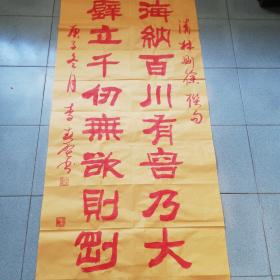 清林则徐联句
海納百川有容乃大
壁立千仞無欲則剛
庚子冬月